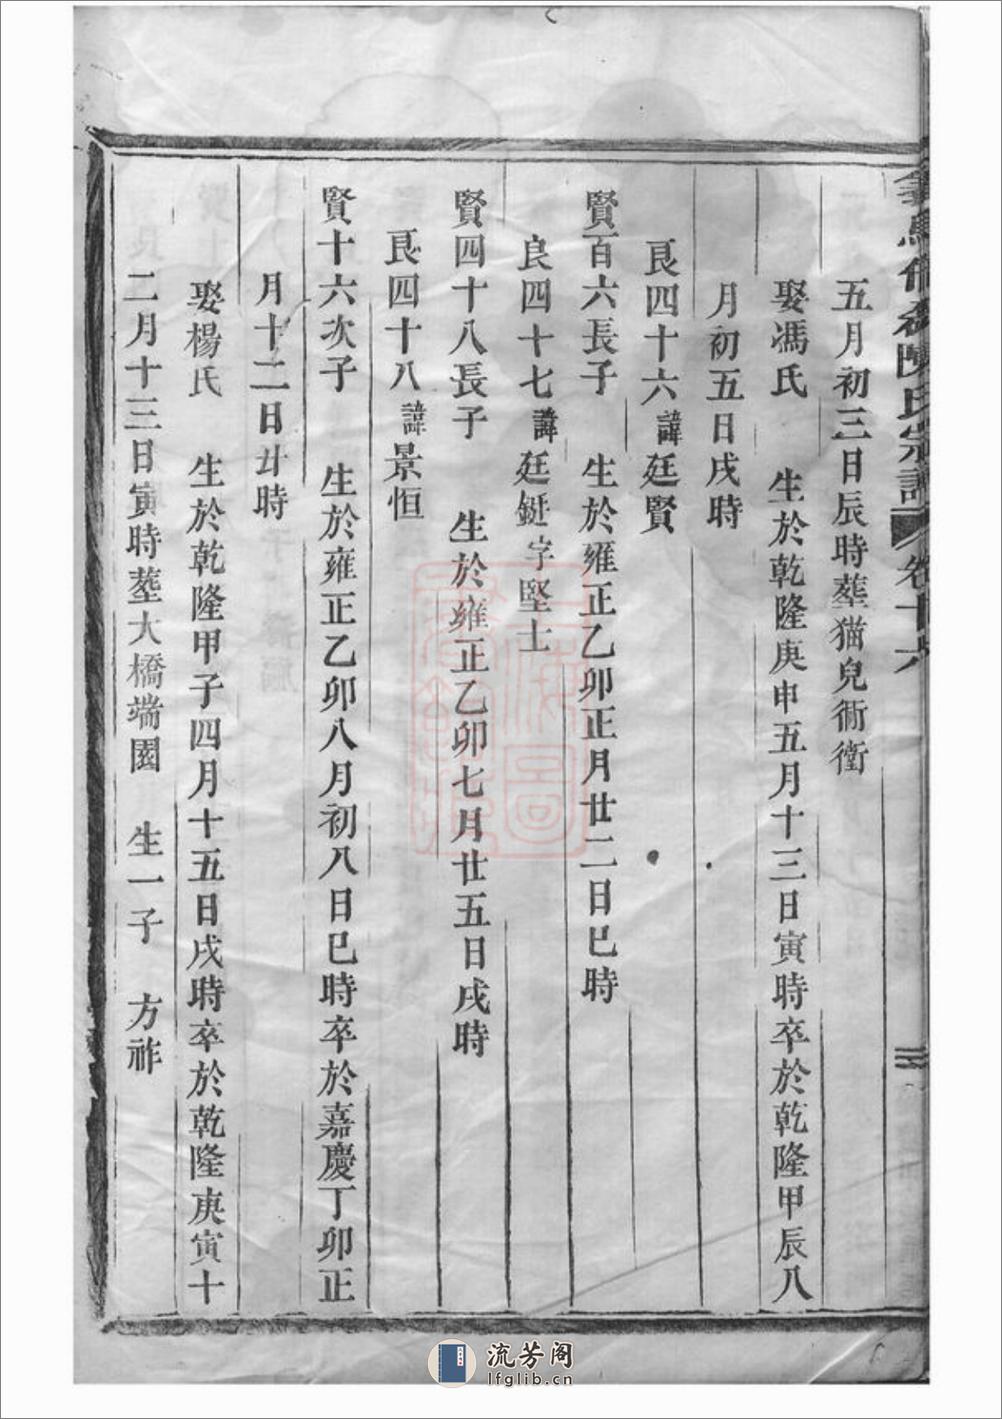 陳氏宗譜 卷十六
五月初三日辰時塟猫兒衕衛
娶馮氏 生於乾隆庚申五月十三日寅時卒於乾隆甲辰八
月初五日戌時
良四十六諱廷賢
賢百六長子 生於雍正乙卯正月廿二日巳時
良四十七諱廷鋌字堅士
賢四十八長子 生於雍正乙卯七月廿五日戌時
良四十八諱景恒
賢十六次子 生於雍正乙卯八月初八日巳時卒於嘉慶丁卯正
月十二日丑時
娶楊氏 生於乾隆甲子四月十五日戌時卒於乾隆庚寅十
二月十三日寅時塟大橋端園 生一子 方祚
流芳阁
lfglib.cn